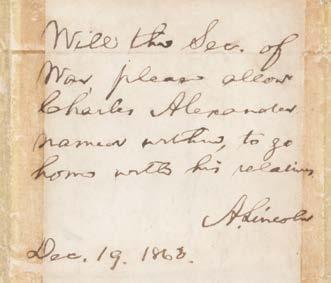 Will the Sec. of
War, please allow
Charles Alexander
named within, to go
home with his relatives
A. Lincoln
Dec. 19. 1863.